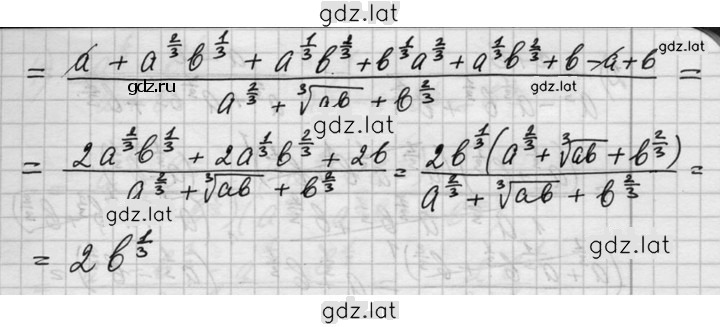 gdz.lat
= a + a^{2/3} b^{1/3} + a^{1/3} b^{2/3} + b^{1/3} a^{2/3} + a^{1/3} b^{2/3} + b - a + b / a^{2/3} + ∛ab + b^{2/3} =
gdz.lat
gdz.ru
gdz.lat
gdz.lat
= 2a^{2/3} b^{1/3} + 2a^{1/3} b^{2/3} + 2b / a^{2/3} + ∛ab + b^{2/3} = 2b^{1/3} (a^{2/3} + ∛ab + b^{2/3}) / a^{2/3} + ∛ab + b^{2/3} =
gdz.lat
gdz.lat
= 2b^{1/3}
gdz.lat